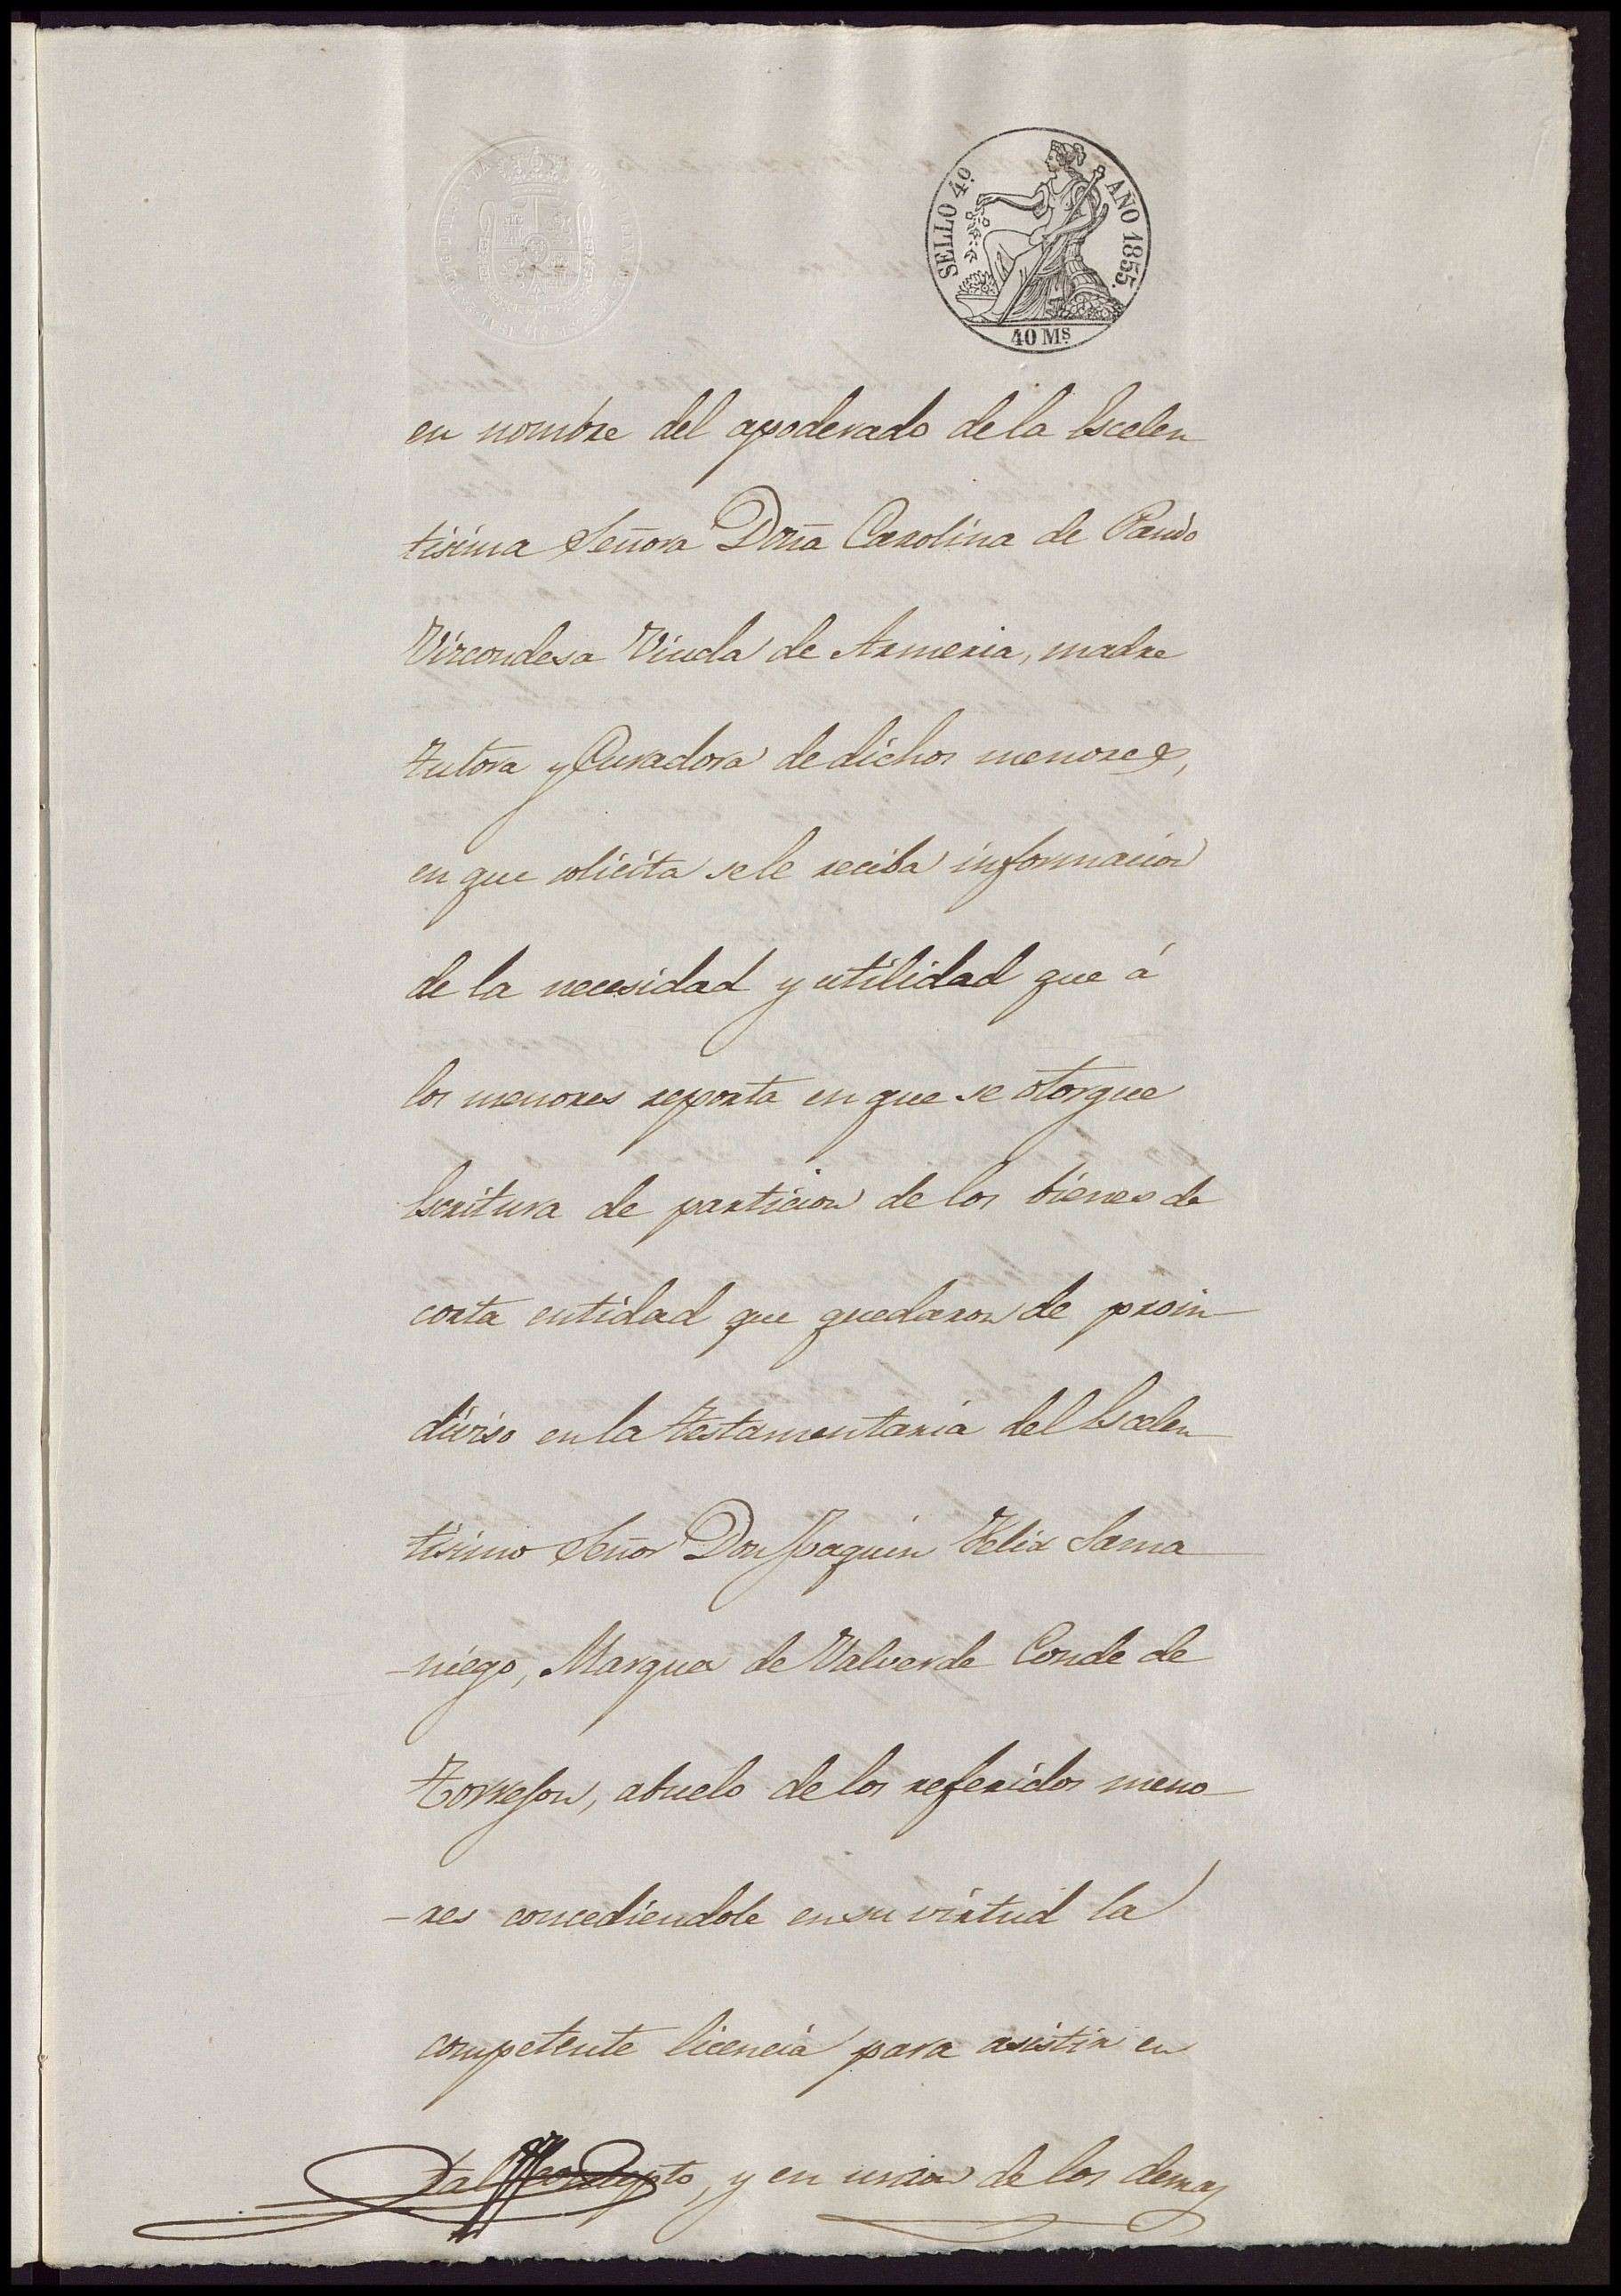 SELLO 4º AÑO 1855.
40 Ms
en nombre del apoderado de la Escelen
tisima Señora Doña Carolina de Pando
Vizcondesa Viuda de Armeria, madre
tutora y Curadora de dichos menores,
en que solicita se le reciba informacion
de la necesidad y utilidad que á
los menores reporta en que se otorgue
Escritura de particion de los bienes de
corta entidad que quedaron de proin-
diviso en la testamentaria del Escelen
tisimo Señor Don Joaquin Felix Sama
-niego, Marques de Valverde Conde de
Torrejon, abuelo de los referidos meno-
-res concediendole en su virtud la
competente licencia para asistir en
tal concepto, y en union de los demas